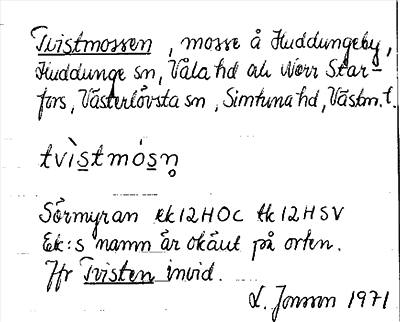 Tvistmossen, mosse å Huddungeby,
Huddunge sn, Våla hd och Norr Starfors, Västerlövsta sn, Simtuna hd, Västm. l.
tvìs̲tmós̲n̥
Sörmyran ek 12HOc tk 12HSV
Ek:s namn är okänt på orten.
Jfr Tvisten invid.
L. Jonsson 1971